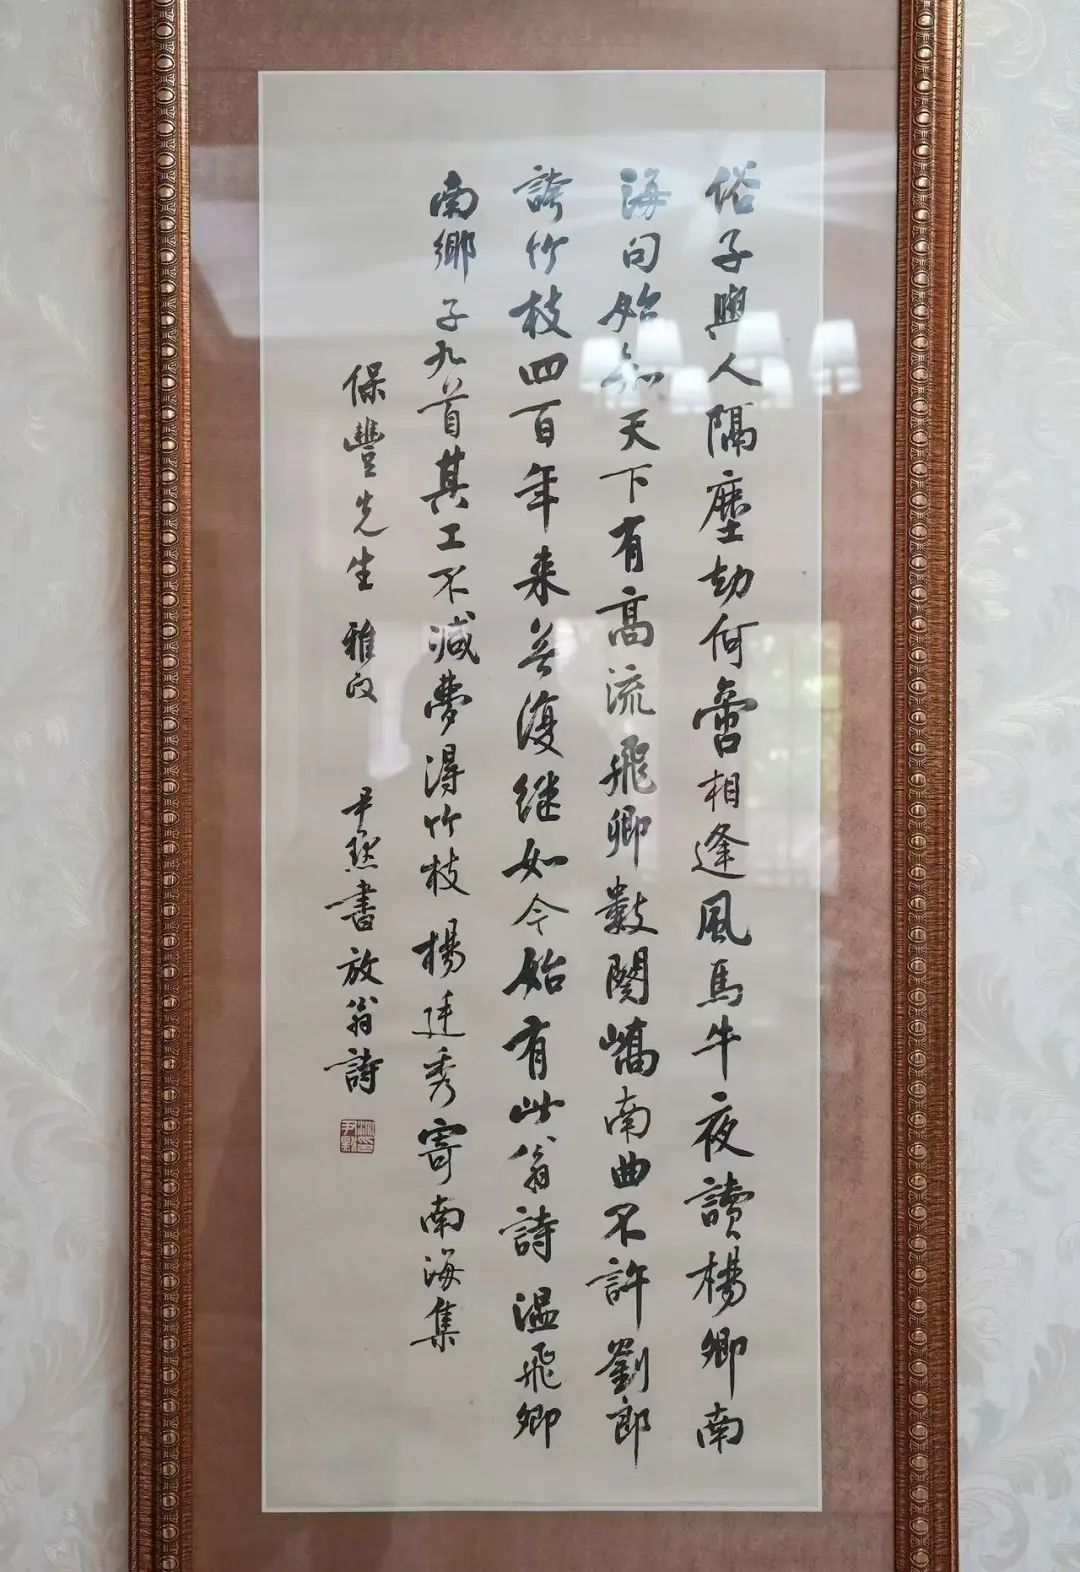 俗子與人隔塵劫何啻相逢風馬牛夜讀楊卿南
海句始知天下有高流飛卿數闋嶠南曲不許劉郎
誇竹枝四百年来無復継如今始有此翁詩 温飛卿
南鄉子九首其工不減夢得竹枝 楊廷秀寄南海集
保豐先生 雅政 尹默書放翁詩